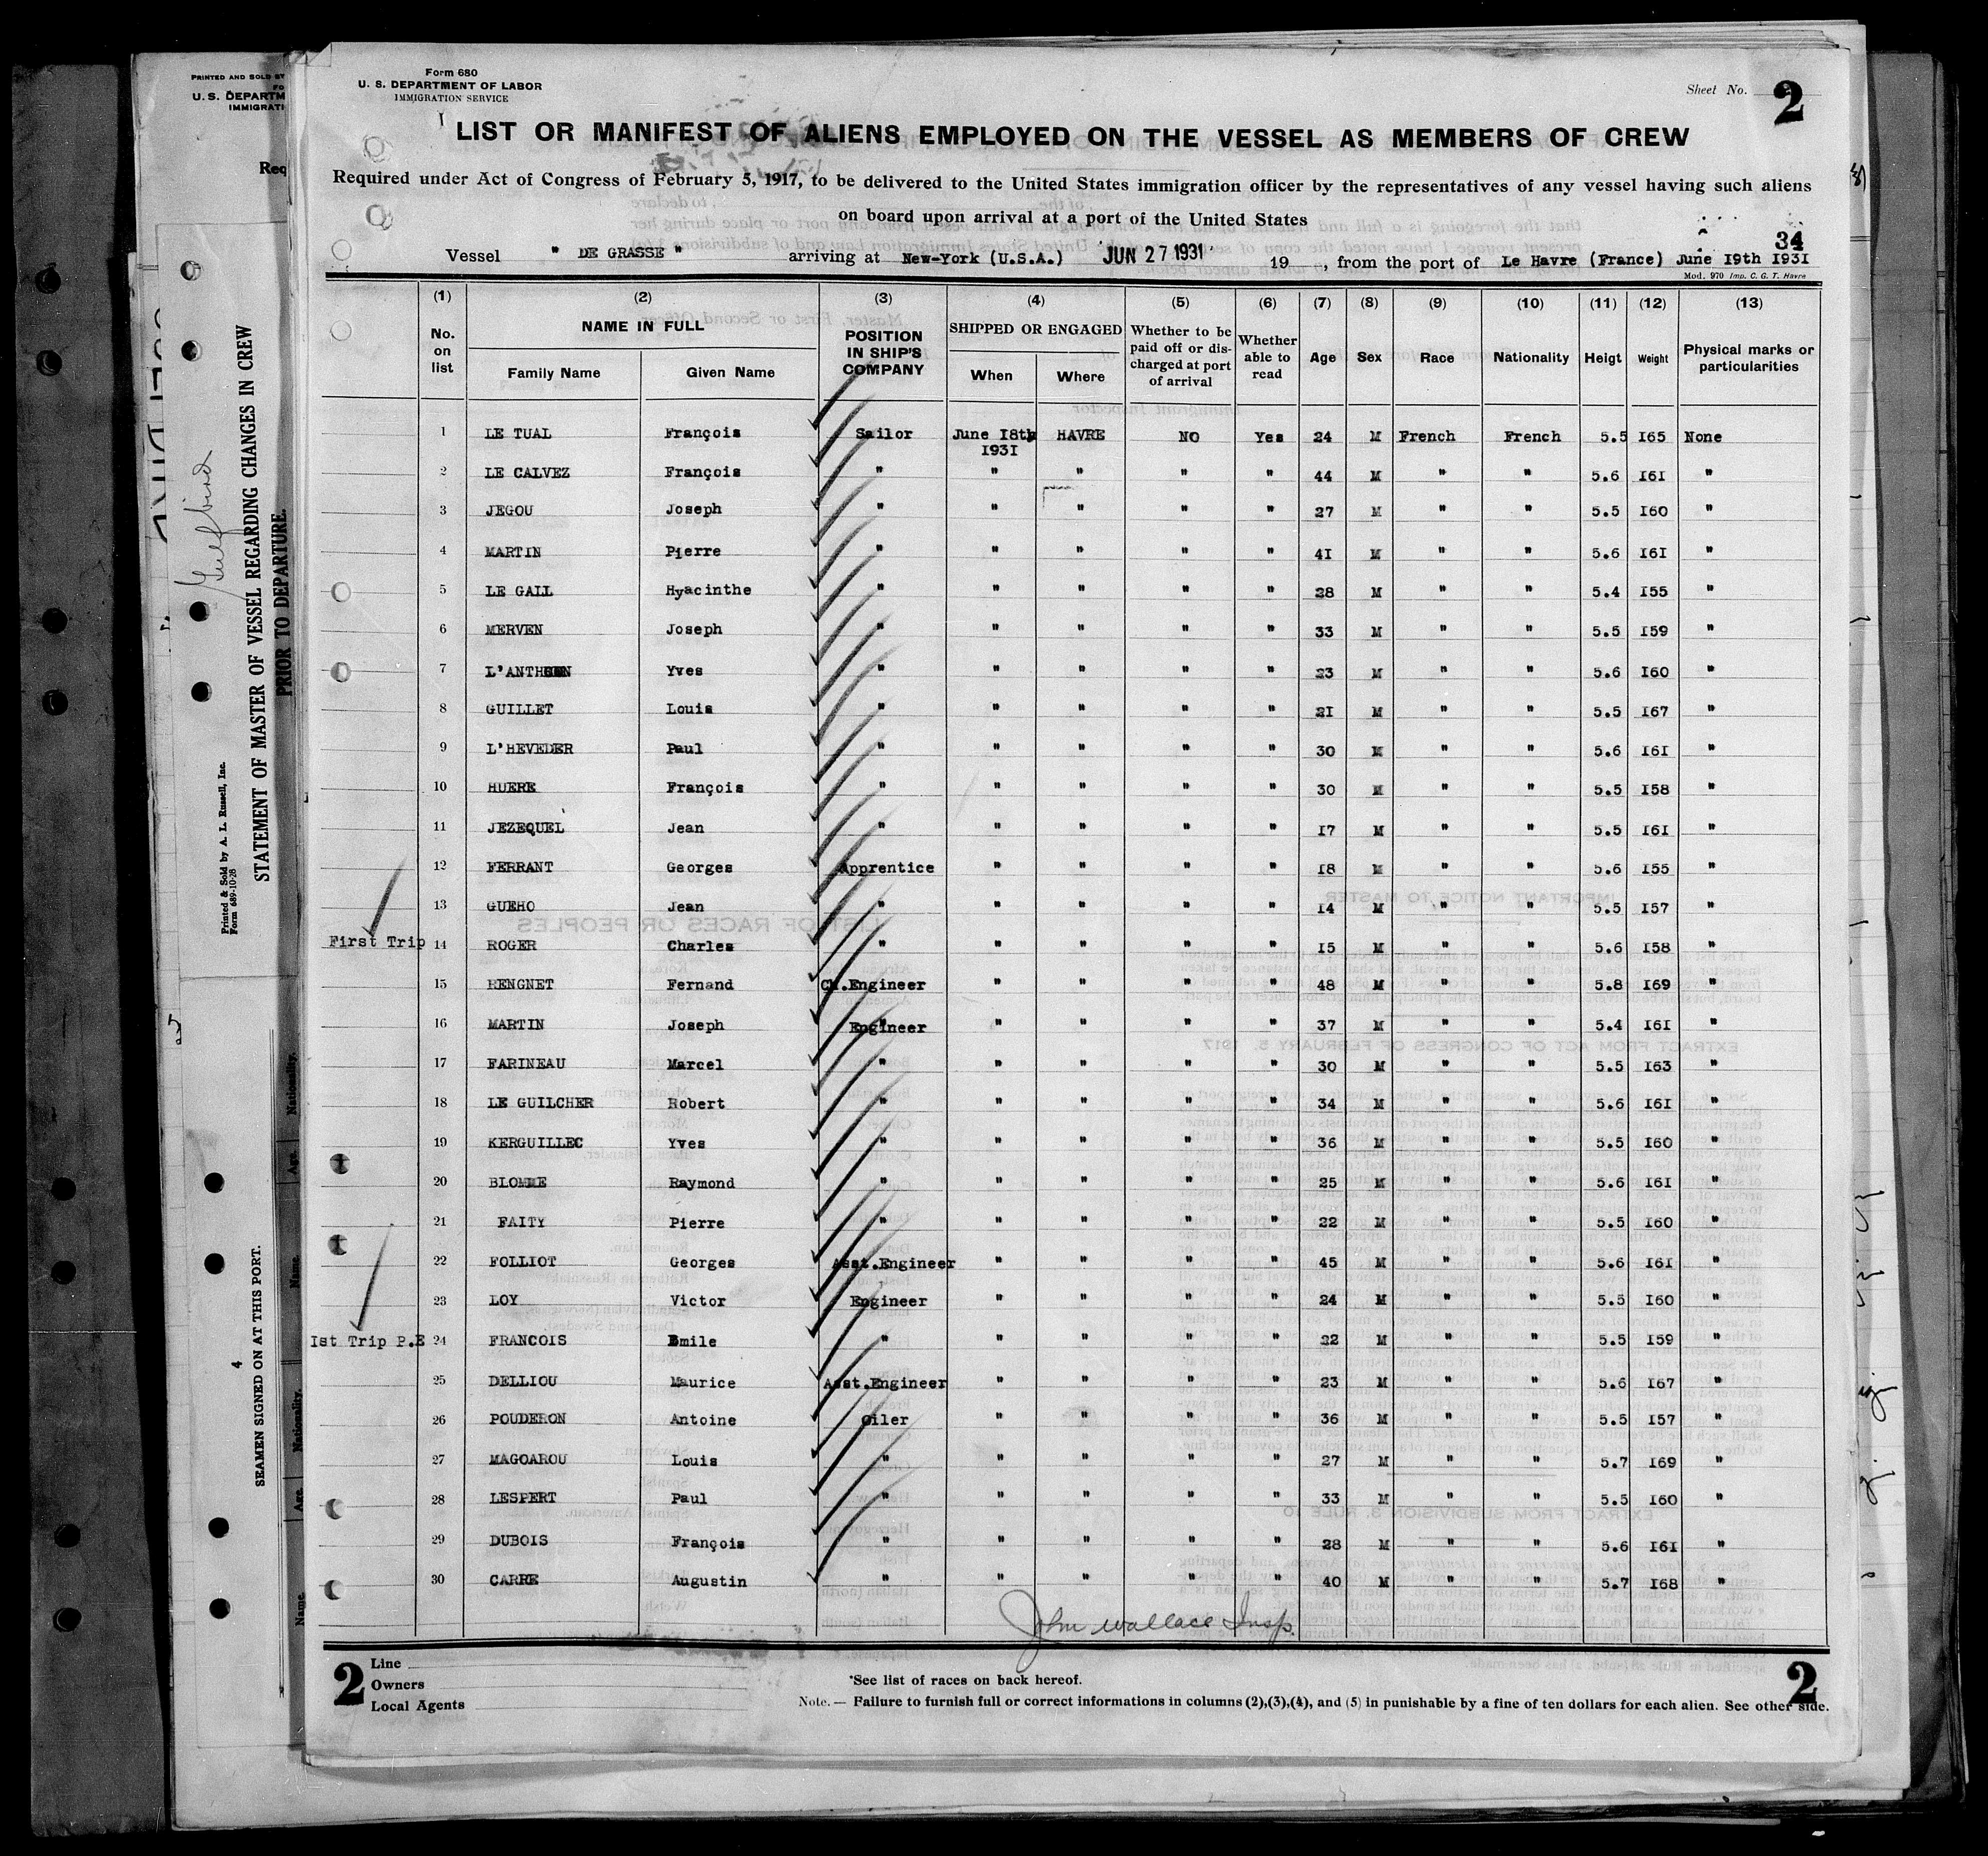 PRINTED AND SOLD BY
FO
U. S. DEPARTM
IMMIGRATI
Req
STATEMENT OF MASTER OF VESSEL REGARDING CHANGES IN CREW
PRIOR TO DEPARTURE.
Printed & Sold by A. L. Russell, Inc.
Form 689-10-28
4
SEAMEN SIGNED ON AT THIS PORT.
Name. Age. Nationality. Name. Age. Nationality.
Form 680
U. S. DEPARTMENT OF LABOR
IMMIGRATION SERVICE
Sheet No. 2
LIST OR MANIFEST OF ALIENS EMPLOYED ON THE VESSEL AS MEMBERS OF CREW
Required under Act of Congress of February 5, 1917, to be delivered to the United States immigration officer by the representatives of any vessel having such aliens
on board upon arrival at a port of the United States
34
Vessel " DE GRASSE " arriving at New-York (U.S.A.) JUN 27 1931 19 , from the port of Le Havre (France) June I9th I93I
Mod. 970 Imp. C. G. T. Havre
(1) (2) (3) (4) (5) (6) (7) (8) (9) (10) (11) (12) (13)
No. on list NAME IN FULL Family Name Given Name POSITION IN SHIP'S COMPANY SHIPPED OR ENGAGED When Where Whether to be paid off or discharged at port of arrival Whether able to read Age Sex Race Nationality Heigt Weight Physical marks or particularities
1 LE TUAL François Sailor June I8th I93I HAVRE NO Yes 24 M French French 5.5 I65 None
2 LE CALVEZ François " " " " " 44 M " " 5.6 I6I "
3 JEGOU Joseph " " " " " 27 M " " 5.5 I60 "
4 MARTIN Pierre " " " " " 4I M " " 5.6 I6I "
5 LE GALL Hyacinthe " " " " " 28 M " " 5.4 I55 "
6 MERVEN Joseph " " " " " 33 M " " 5.5 I59 "
7 Yves " " " " " 23 M " " 5.6 I60 "
8 GUILLET Louis " " " " " 2I M " " 5.5 I67 "
9 L'HEVEDER Paul " " " " " 30 M " " 5.6 I6I "
10 HUERE François " " " " " 30 M " " 5.5 I58 "
11 JEZEQUEL Jean " " " " " I7 M " " 5.5 I6I "
12 FERRANT Georges Apprentice " " " " I8 M " " 5.6 I55 "
13 GUEHO Jean " " " " " I4 M " " 5.5 I57 "
First Trip 14 ROGER Charles " " " " " I5 M " " 5.6 I58 "
15 RENGNET Fernand Ch.Engineer " " " " 48 M " " 5.8 I69 "
16 MARTIN Joseph Engineer " " " " 37 M " " 5.4 I6I "
17 FARINEAU Marcel " " " " " 30 M " " 5.5 I63 "
18 LE GUILCHER Robert " " " " " 34 M " " 5.6 I6I "
19 KERGUILLEC Yves " " " " " 36 M " " 5.5 I60 "
20 BLOMME Raymond " " " " " 25 M " " 5.6 I6I "
21 FAITY Pierre " " " " " 22 M " " 5.5 I60 "
22 FOLLIOT Georges Asst.Engineer " " " " 45 M " " 5.6 I6I "
23 LOY Victor Engineer " " " " 24 M " " 5.5 I60 "
Ist Trip P.E 24 FRANCOIS Emile " " " " " 22 M " " 5.5 I59 "
25 DELLIOU Maurice Asst.Engineer " " " " 23 M " " 5.6 I67 "
26 POUDERON Antoine Oiler " " " " 36 M " " 5.5 I57 "
27 MAGOAROU Louis " " " " " 27 M " " 5.7 I69 "
28 LESPERT Paul " " " " " 33 M " " 5.5 I60 "
29 DUBOIS François " " " " " 28 M " " 5.6 I6I "
30 CARRE Augustin " " " " " 40 M " " 5.7 I68 "
John Wallace Insp.
2 Line
Owners
Local Agents
*See list of races on back hereof.
Note. — Failure to furnish full or correct informations in columns (2),(3),(4), and (5) in punishable by a fine of ten dollars for each alien. See other side.
2